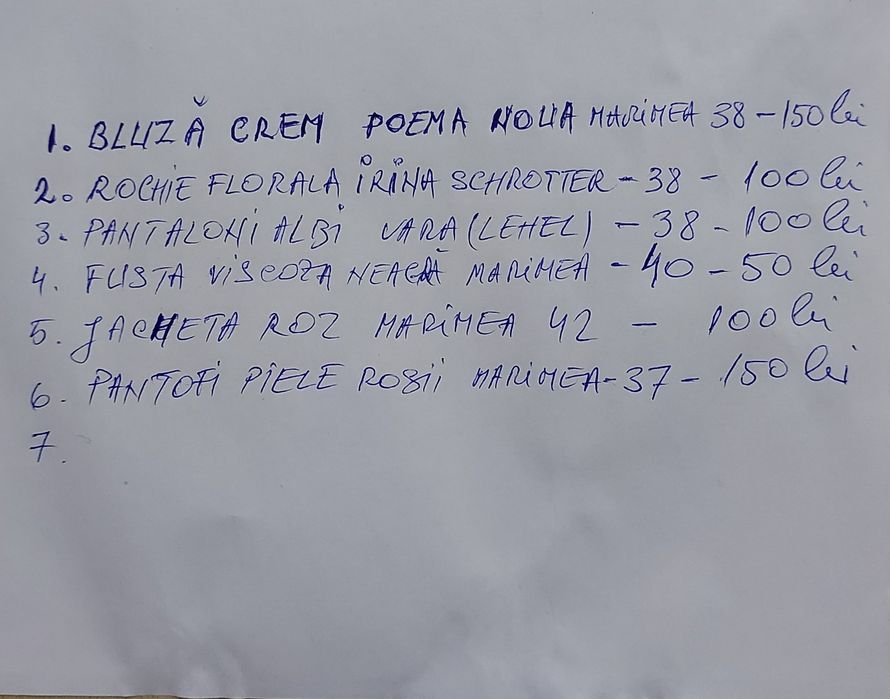 1. BLUZĂ CREM POEMA NOUA MARIMEA 38 - 150 lei
2. ROCHIE FLORALA IRINA SCHROTTER - 38 - 100 lei
3. PANTALONI ALBI VARA (LEHEL) - 38 - 100 lei
4. FUSTA VISCOZA NEAGRĂ MARIMEA - 40 - 50 lei
5. JACHETA ROZ MARIMEA 42 - 100 lei
6. PANTOFI PIELE ROSII MARIMEA - 37 - 150 lei
7.